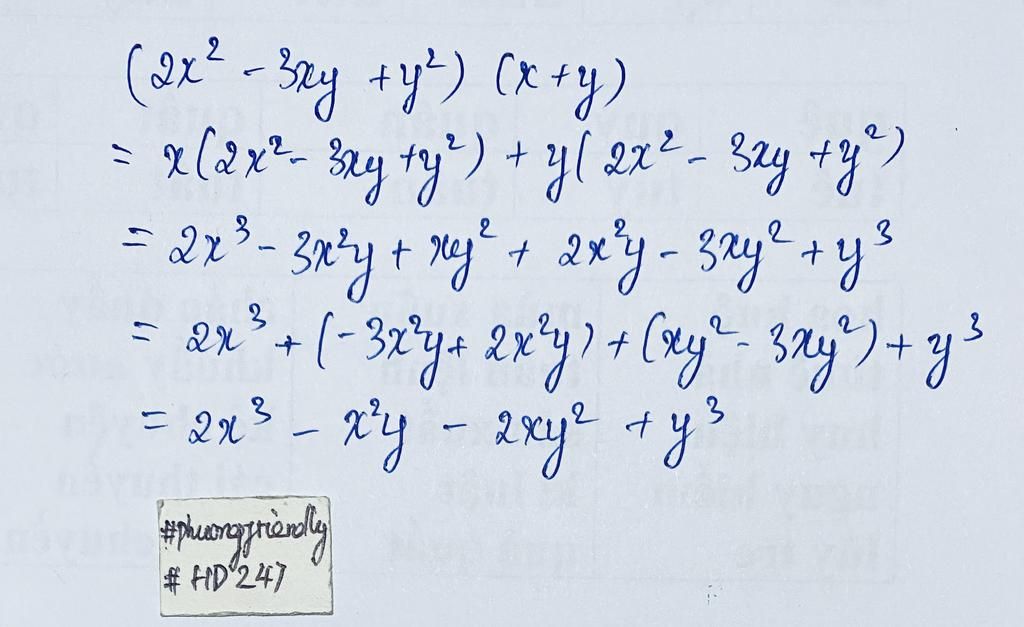 (2x² - 3xy + y²) (x + y)
= x(2x² - 3xy + y²) + y(2x² - 3xy + y²)
= 2x³ - 3x²y + xy² + 2x²y - 3xy² + y³
= 2x³ + (-3x²y + 2x²y) + (xy² - 3xy²) + y³
= 2x³ - x²y - 2xy² + y³
#phuongfriendly
# HD 247